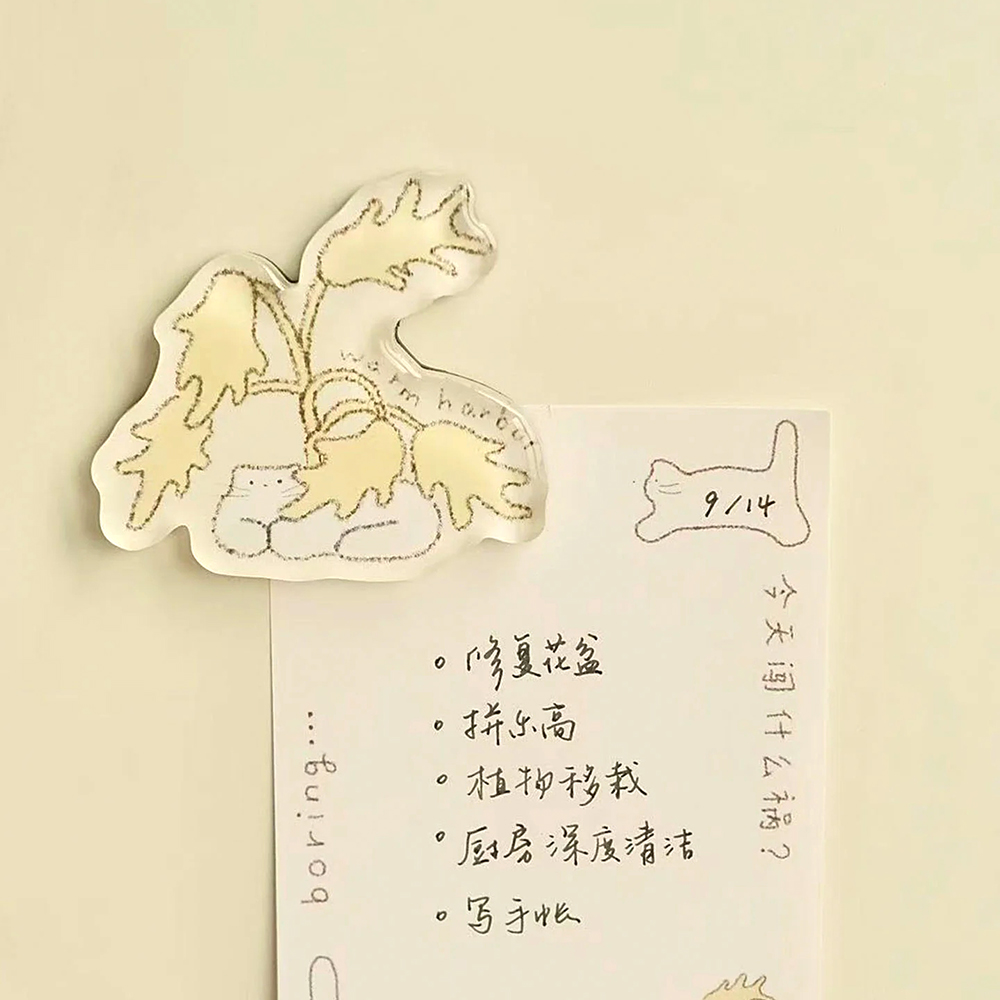 warm harbor
9/14
今天闯什么祸？
修复花盆
拼乐高
植物移栽
厨房深度清洁
写手帐
boring...